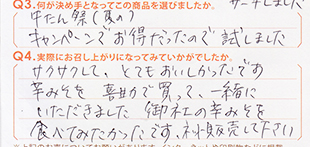 Q3.何が決め手となってこの商品を選びましたか。 サーチしました
牛たん祭(夏の)
キャンペーンでお得だったので試しました
Q4.実際にお召し上がりになってみていかがでしたか。
サクサクして、とてもおいしかったです
辛みそを 喜助で買って、一緒に
いただきました 御社の辛みそを
食べてみたかったです、ネット販売して下さい